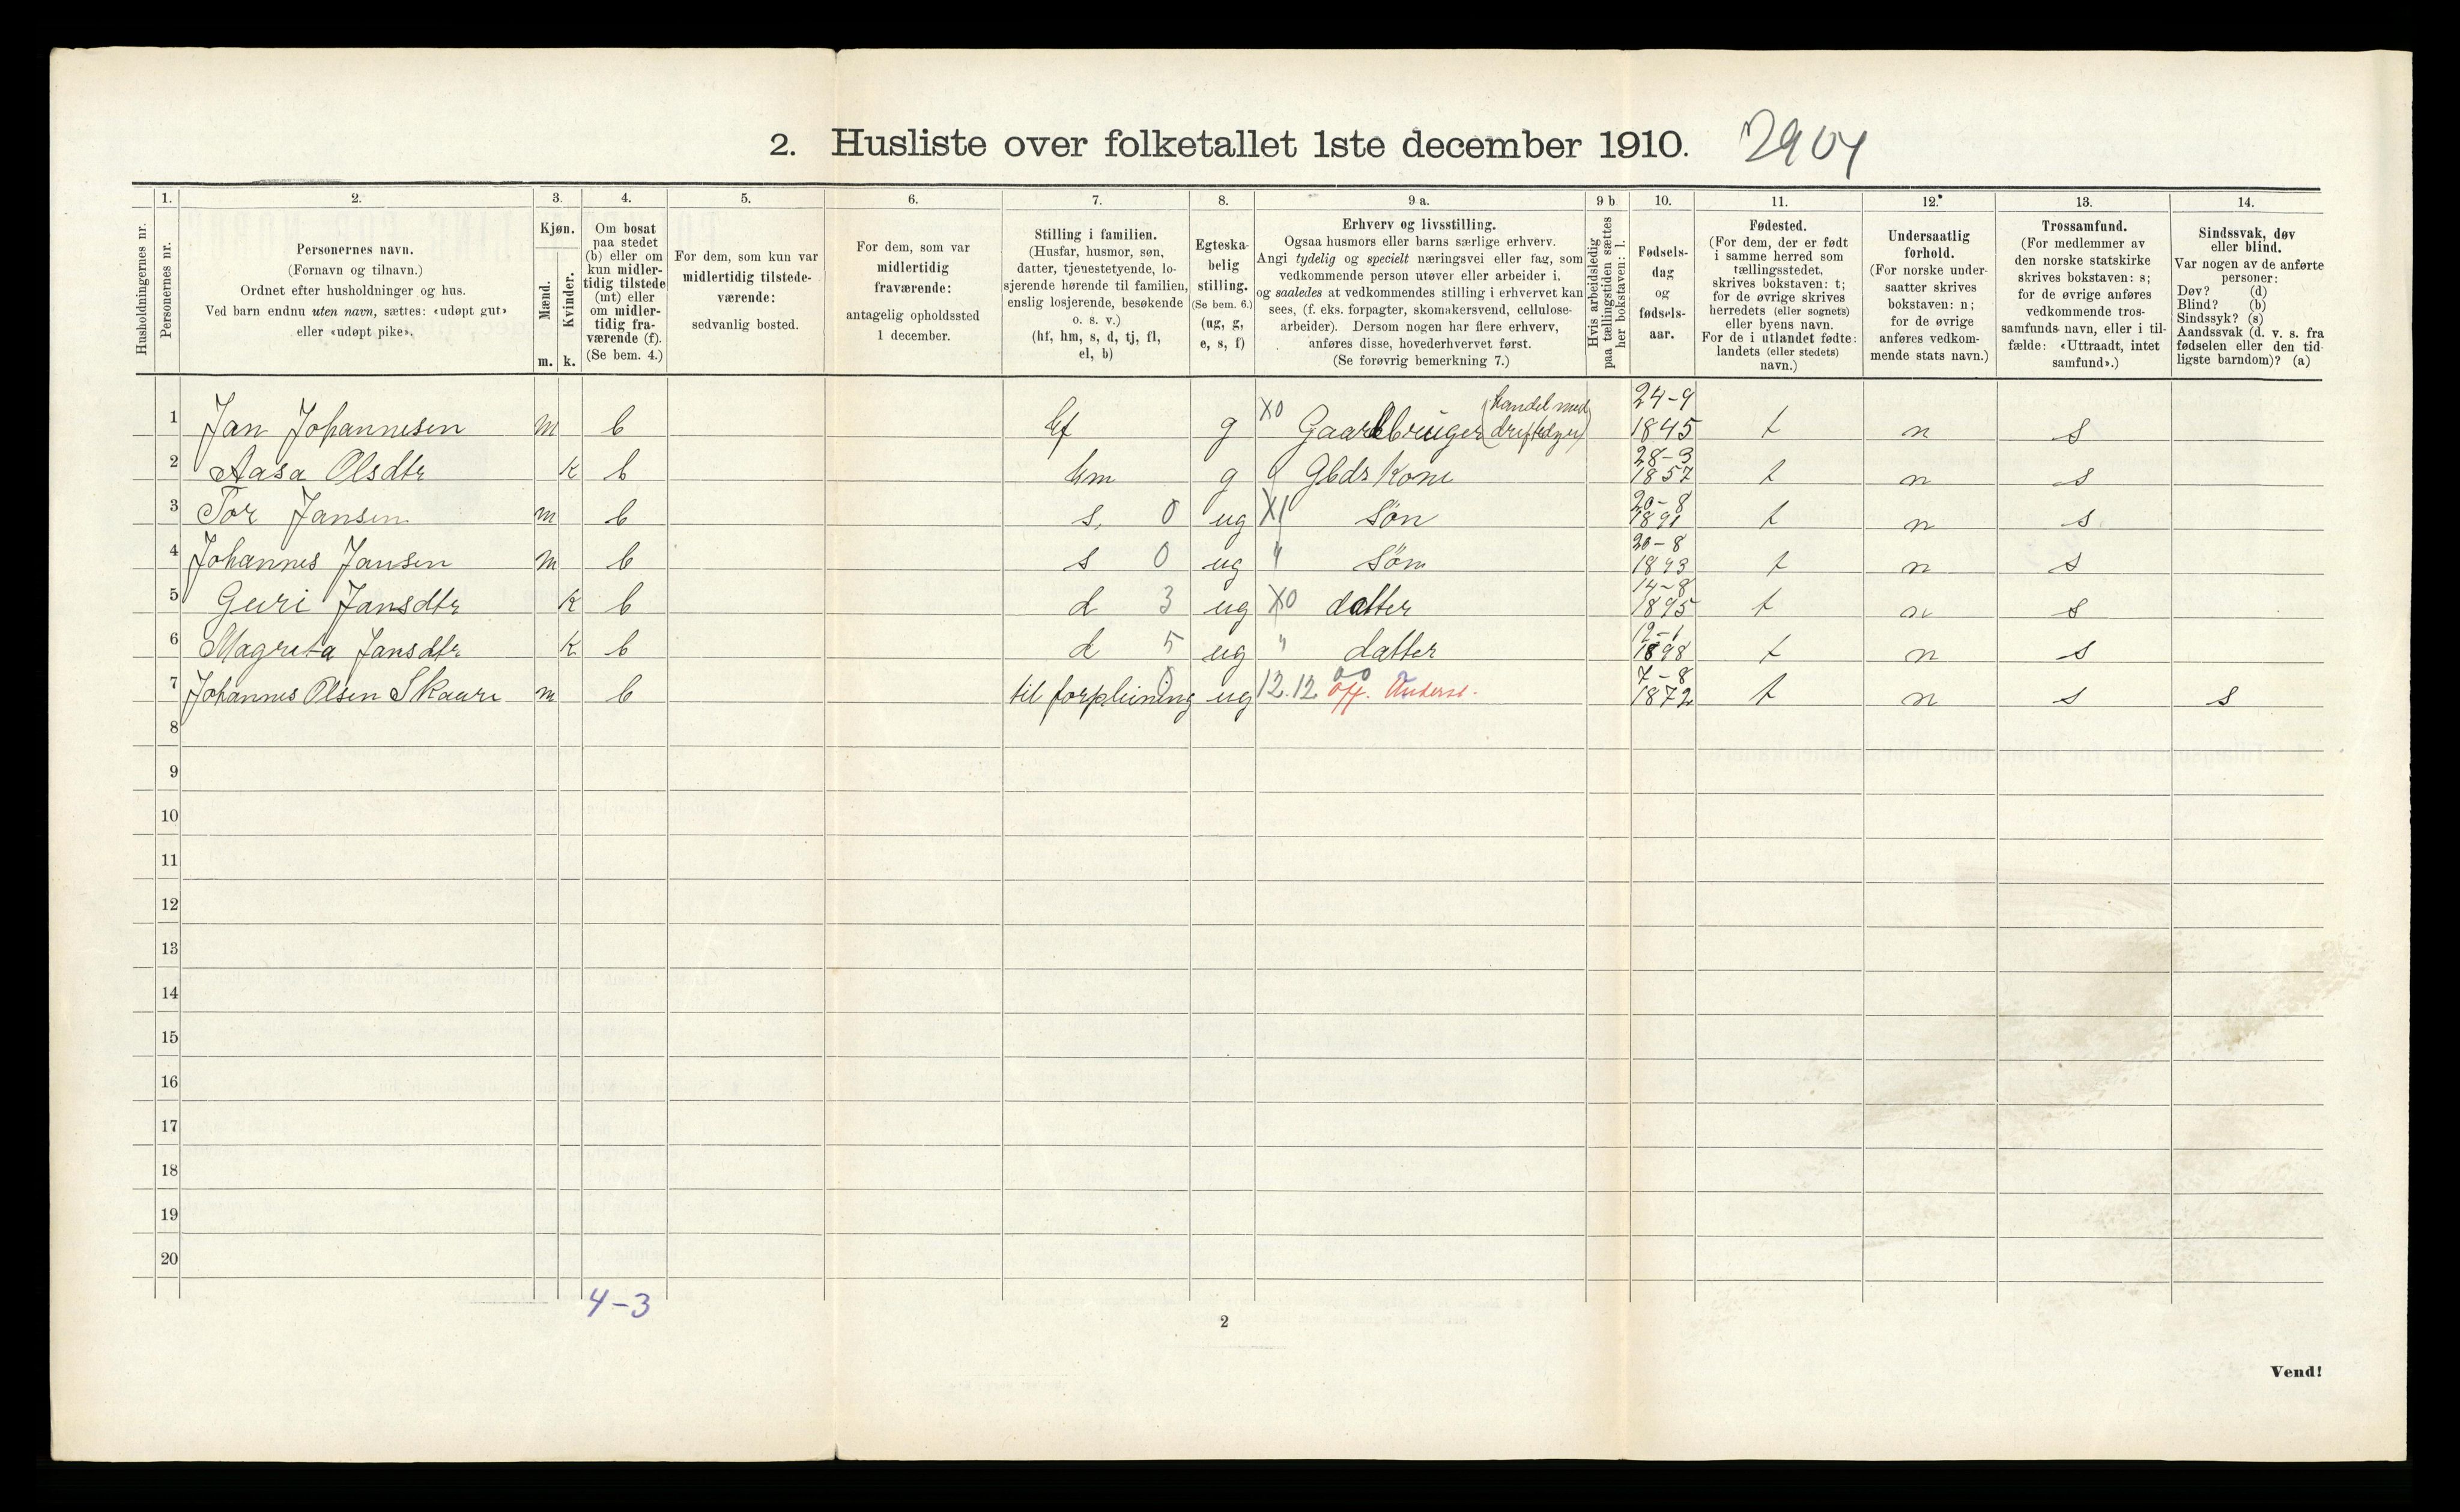 2. Husliste over folketallet 1ste december 1910. 2904
Husholdningernes nr.
1.
Personernes nr.
2.
Personernes navn.
(Fornavn og tilnavn.)
Ordnet efter husholdninger og hus.
Ved barn endnu uten navn, sættes: «udøpt gut»
eller «udøpt pike».
3.
Kjøn.
Mænd.
Kvinder.
m. k.
4.
Om bosat
paa stedet
(b) eller om
kun midler-
tidig tilstede
(mt) eller
om midler-
tidig fra-
værende (f).
(Se bem. 4.)
5.
For dem, som kun var
midlertidig tilstede-
værende:
sedvanlig bosted.
6.
For dem, som var
midlertidig
fraværende:
antagelig opholdssted
1 december.
7.
Stilling i familien.
(Husfar, husmor, søn,
datter, tjenestetyende, lo-
sjerende hørende til familien,
enslig losjerende, besøkende
o. s. v.)
(hf, hm, s, d, tj, fl,
el, b)
8.
Egteska-
belig
stilling.
(Se bem. 6.)
(ug, g,
e, s, f)
9 a.
Erhverv og livsstilling.
Ogsaa husmors eller barns særlige erhverv.
Angi tydelig og specielt næringsvei eller fag, som
vedkommende person utøver eller arbeider i,
og saaledes at vedkommendes stilling i erhvervet kan
sees, (f. eks. forpagter, skomakersvend, cellulose-
arbeider). Dersom nogen har flere erhverv,
anføres disse, hovederhvervet først.
(Se forøvrig bemerkning 7.)
9 b
Hvis arbeidsledig
paa tællingstiden sættes
her bokstaven: l.
10.
Fødsels-
dag
og
fødsels-
aar.
11.
Fødested.
(For dem, der er født
i samme herred som
tællingsstedet,
skrives bokstaven: t;
for de øvrige skrives
herredets (eller sognets)
eller byens navn.
For de i utlandet fødte:
landets (eller stedets)
navn.)
12.
Undersaatlig
forhold.
(For norske under-
saatter skrives
bokstaven: n;
for de øvrige
anføres vedkom-
mende stats navn.)
13.
Trossamfund.
(For medlemmer av
den norske statskirke
skrives bokstaven: s;
for de øvrige anføres
vedkommende tros-
samfunds navn, eller i til-
fælde: «Uttraadt, intet
samfund».)
14.
Sindssvak, døv
eller blind.
Var nogen av de anførte
personer:
Døv? (d)
Blind? (b)
Sindssyk? (s)
Aandssvak (d. v. s. fra
fødselen eller den tid-
ligste barndom)? (a)
1 Jan Johannesen m b hf g X0 Gaardbruger (handel med driftedyr) 24-9 1845 t n s
2 Aasa Olsdtr k b hm g Gbds kone 28-3 1857 t n s
3 Tor Jansen m b s. 0 ug X1 søn 20-8 1891 t n s
4 Johannes Jansen m b s 0 ug " søn 20-8 1893 t n s
5 Guri Jansdtr k b d 3 ug X0 datter 14-8 1895 t n s
6 Magreta Jansdtr k b d 5 ug " datter 12-1 1898 t n s
7 Johannes Olsen Skaare m b til forpleining 0 ug 12.12 00 off. Underst. 7-8 1872 t n s s
8
9
10
11
12
13
14
15
16
17
18
19
20
4-3
2
Vend!